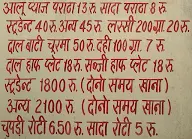 आलू प्याज पराठा 13 रु. सादा पराठा 8 रु.
स्टूडेन्ट 40 रु. अन्य 45 रु. लस्सी 200 ग्रा. 20 रु.
दाल बाटी चूरमा 50 रु. दही 100 ग्रा. 7 रु.
दाल हाफ प्लेट 18 रु. सब्जी हाफ प्लेट 18 रु.
स्टूडेन्ट 1800 रु. (दोनो समय खाना)
अन्य 2100 रु. (दोनो समय खाना)
चुपड़ी रोटी 6.50 रु. सादा रोटी 5 रु.